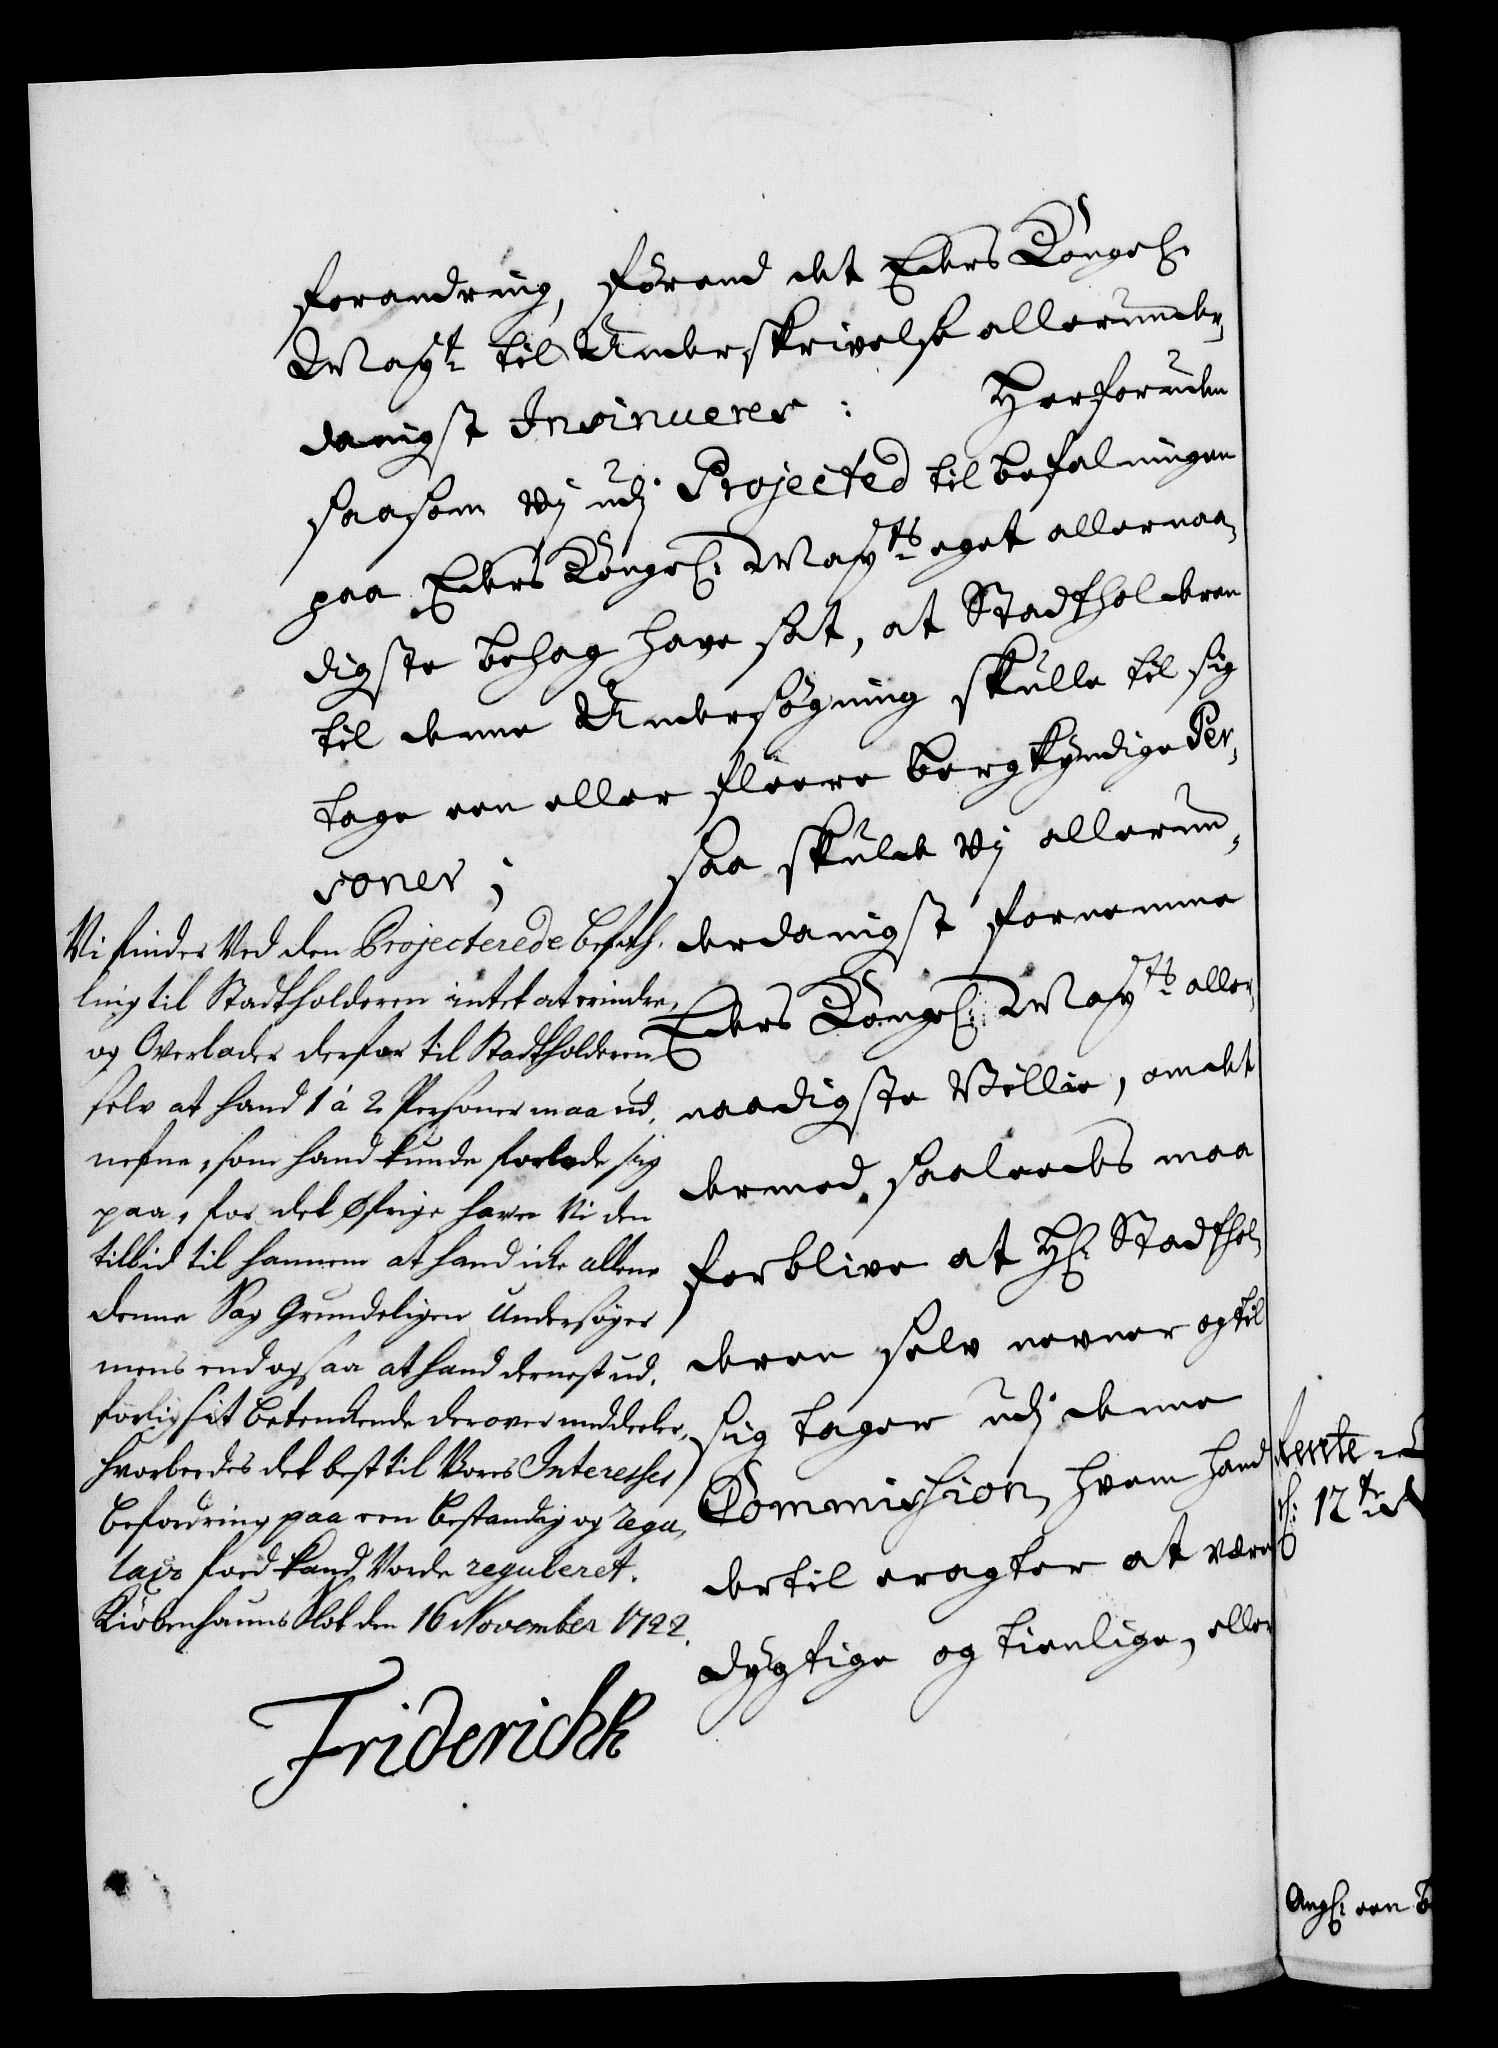 forandring, förend det Eders Kongel:
May:t til Underskrivelse allerunder,
danigst Insinueres: Herforuden
saasom Vj udj Projected til befalningen
paa Eders Kongel: May:ts eget allernaa,
digste behag have sat, at Stadtholderen
til denne Undersøgning skulle til sig
tage een eller fleere bergkyndige Per,
soner; saa skulde Vj allerun,
derdanigst fornemme
Eders Kongel: May:ts aller,
naadigste Villie, om det
dermed saaleedes maa
forblive at H: Stadthol,
deren selv nevner og til
sig tager udj denne
Commission, hvem hand
dertil eragter at være
dygtige og tienlige, eller
Vi finder Ved den Projecterede befah,
ling til Stadtholderen intet at erindre,
og Overlader derfor til Stadtholderen
selv at hand 1 à 2 Personer maa ud,
nefne, som hand kunde forlade sig
paa, for det øfrige have Vi den
tillid til hannem at hand icke allene
denne Sag Grundeligen Undersøger
mens end og saa at hand dernest ud,
førlig sit Betenckende derover meddeeler,
hvorledes det best til Vores Interesses
befordring paa een bestandig og regu,
laire foed kand Vorde reguleret.
Kiøbenhauns Slot den 16 November 1722.
Friderich R
12te
Angl: een